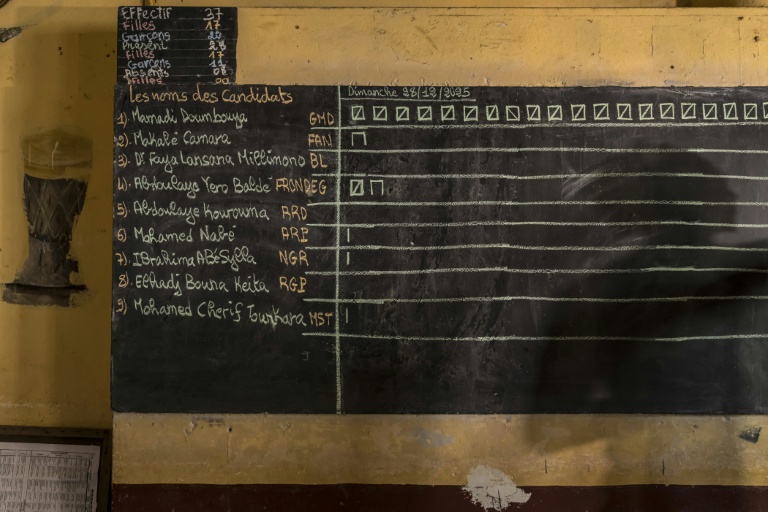 Effectif 37
Filles 17
Garçons 20
Présent 28
Filles 17
Garçons 11
Absents 08
Filles 00
Les noms des Candidats
Dimanche 28/12/2025
1) Mamadi Doumbouya GMD
2) Makalé Camara FAN
3) Dr Faya Lansana Millimono BL
4) Abdoulaye Yero Baldé FRONDEG
5) Abdoulaye Kourouma RRD
6) Mohamed Nabé ARP
7) Ibrahima ABé Sylla NGR
8) Elhadj Bouna Keita RGP
9) Mohamed Cherif Tounkara MST